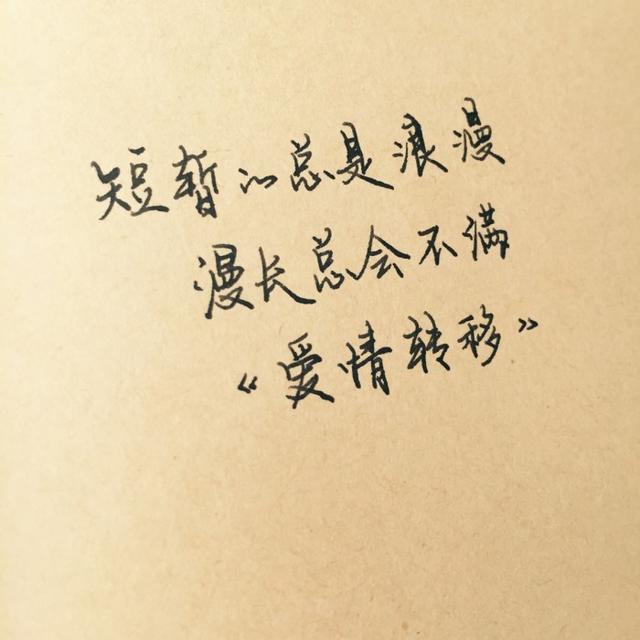 短暂的总是浪漫
漫长总会不满
《爱情转移》